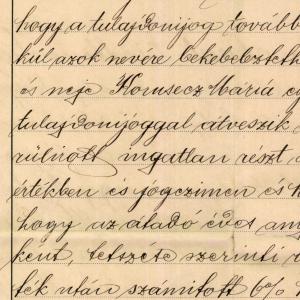 hogy a tulajdonijog tovább
kül azok nevére bekebelezteth
és neje Konusecz Mária
tulajdonijóggal átveszik
rülirott ingatlan részt
értékben és jógczimen és
hogy az átadó édes any
ként, tetszéte szerinti
ték után számitott 6%